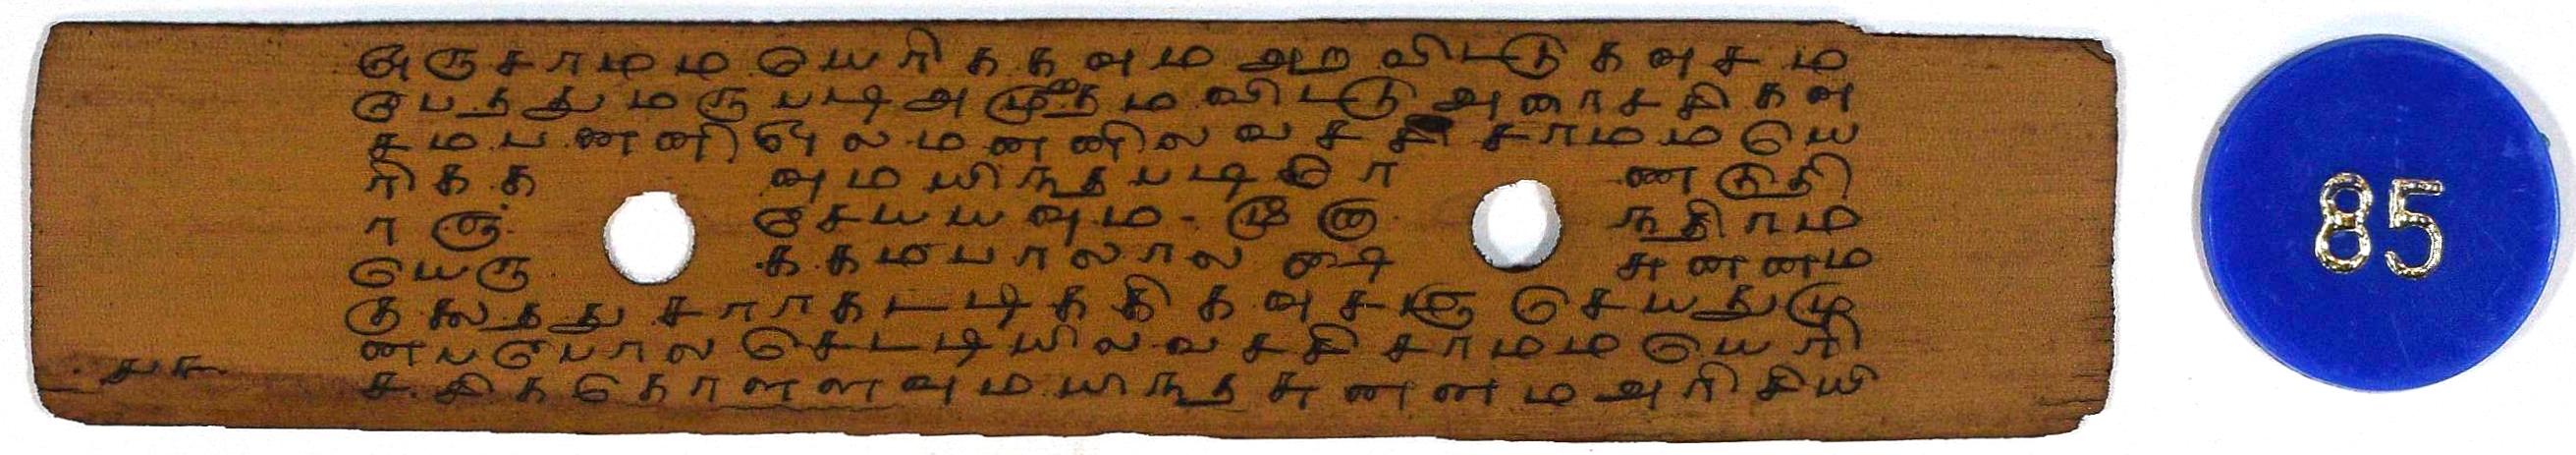 அருசாமம யெரிககவும அறவிடடு கவசம
பெதது மருபடி அமுதம விடடு அரைசசி கவ
சம பணணி மெல மணணில வசசி சாமம யெ
ரிகக வுமயிநதபடி யிர ணடுதி
ரஞ செயயவும - முனு நதிரம
யெரு ககமபாலால ஒடி சுணணம
குலதது சராகடடிககி கவசஞ செயது மு
ணபபொல செடடியில வசசி சாமம யெரி
ச சிககொளளவும யிநத சுணணம அரிசியி
85